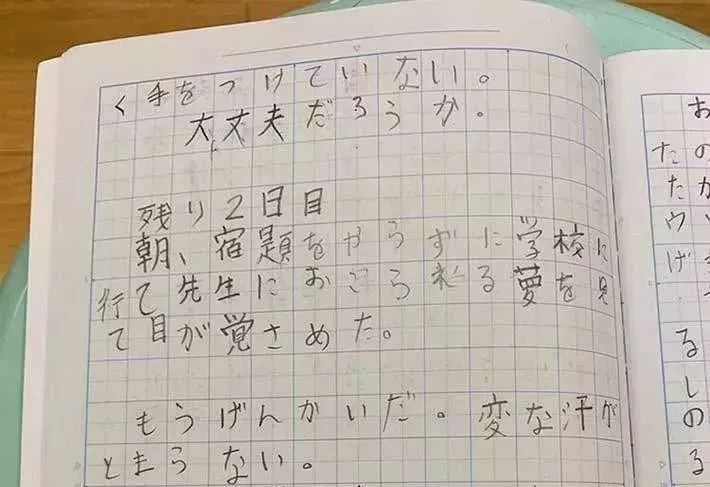 く手をつけていない。
大丈夫だろうか。
残り2日目
朝、宿題をやらずに学校に
行て先生におこられる夢を見
て目が覚さめた。
もうげんかいだ。変な汗が
とまらない。
お
たの
た
ウ
げ
る
し
の
る